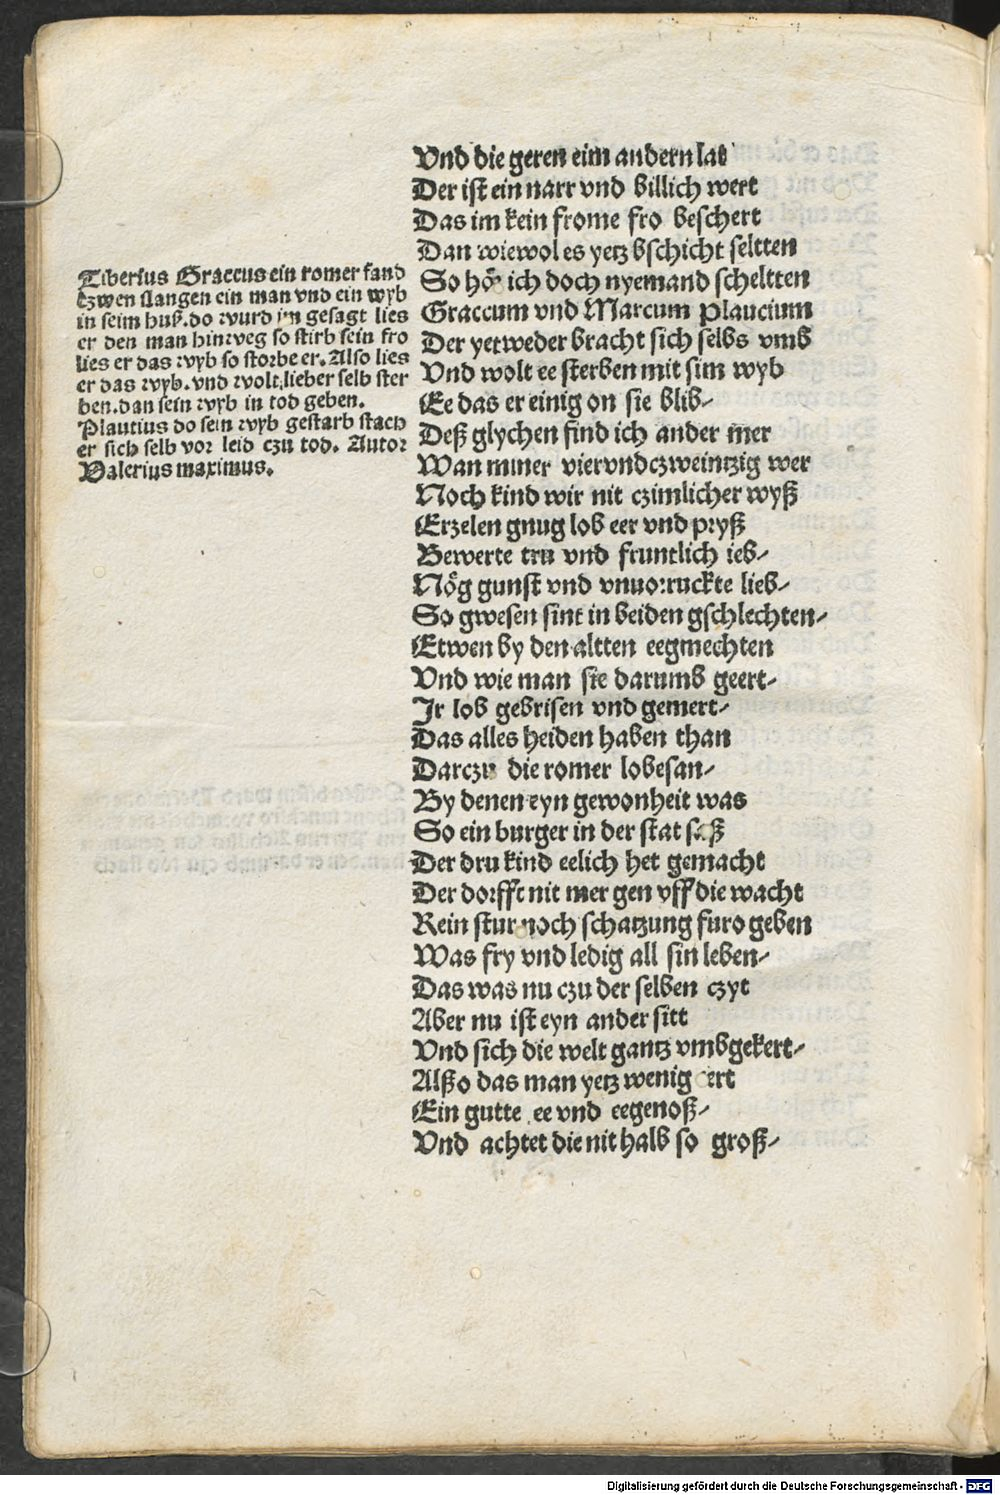 Vnd die geren eim andern lat
Der ist ein narr vnd billich wert
Das im kein frome fro beschert
Dan wiewol es yetz bschicht seltten
So hoͤr ich doch nyemand scheltten
Graccum vnd Marcum Plaucium
Der yetweder bracht sich selbs vmb
Vnd wolt ee sterben mit sim wyb
Ee das er einig on sie blib/
Deß glychen find ich ander mer
Wan mmer viervndczweintzig wer
Noch kind wir nit czimlicher wyß
Erzelen gnug lob eer vnd pryß
Bewerte tru vnd fruntlich ieb/
Noͤg gunst vnd vnuorruckte lieb/
So gwesen sint in beiden gschlechten/
Etwen by den altten eegmechten
Vnd wie man sie darumb geert/
Jr lob gebrisen vnd gemert/
Das alles heiden haben than
Darczu die romer lobesan/
By denen eyn gewonheit was
So ein burger in der stat saß
Der dru kind eelich het gemacht
Der dorfft nit mer gen vff die wacht
Kein stur noch schatzung furo geben
Was fry vnd ledig all sin leben/
Das was nu czu der selben czyt
Aber nu ist eyn ander sitt
Vnd sich die welt gantz vmbgekert/
Alßo das man yetz wenig ert
Ein gutte ee vnd eegenoß/
Vnd achtet die nit halb so groß/
Tiberius Graccus ein romer fand
czwen slangen ein man vnd ein wyb
in seim huß. do wurd im gesagt lies
er den man hinweg so stirb sein fro
lies er das wyb so storbe er. Also lies
er das wyb. vnd wolt lieber selb ster
ben. dan sein wyb in tod geben.
Plautius do sein wyb gestarb stach
er sich selb vor leid czu tod. Autor
Valerius maximus.
Digitalisierung gefördert durch die Deutsche Forschungsgemeinschaft - DFG